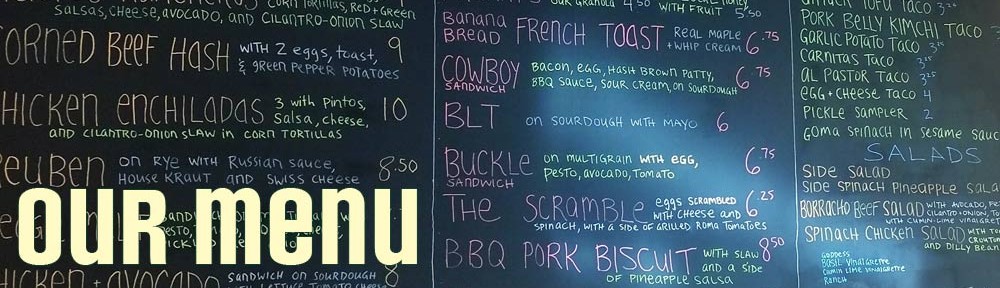 corn tortillas, red + green
salsas, cheese, avocado, and cilantro-onion slaw
corned beef hash with 2 eggs, toast, 9
& green pepper potatoes
chicken enchiladas 3 with pintos, 10
salsa, cheese,
and cilantro-onion slaw in corn tortillas
reuben on rye with Russian sauce, 8.50
house kraut and swiss cheese
our menu
sandwich on sourdough 8
Banana Bread French Toast real maple 6.75
+ whip cream
with fruit 5.50
Cowboy Sandwich Bacon, egg, hash brown patty, 6.75
BBQ sauce, sour cream, on sourdough
BLT on sourdough with mayo 6
Buckle Sandwich on multigrain with egg, 6.75
pesto, avocado, tomato
The Scramble eggs scrambled 6.25
with cheese and
spinach, with a side of grilled roma tomatoes
BBQ Pork Biscuit with slaw 8.50
and a side
of pineapple salsa
Pork Belly Kimchi Taco 3
Garlic Potato Taco 3.25
Carnitas Taco 3.25
Al Pastor Taco 3.25
egg + cheese Taco 4
Pickle Sampler 2
Goma Spinach in sesame
Salads
Side Salad
Side Spinach Pineapple
Borracho Beef Salad with avocado,
cilantro + onion,
with cumin-lime
Spinach Chicken Salad with
and dilly bean
Goddess
Basil Vinaigrette
Cumin Lime Vinaigrette
Ranch